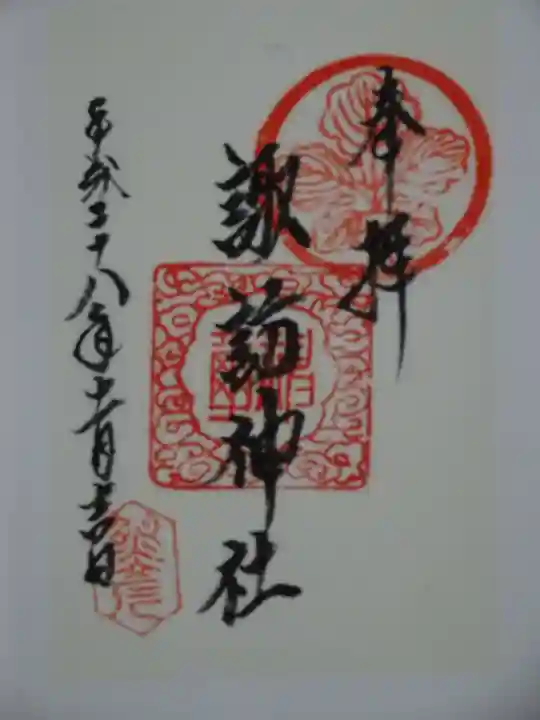 奉拝
諏訪神社
平成二十八年十一月